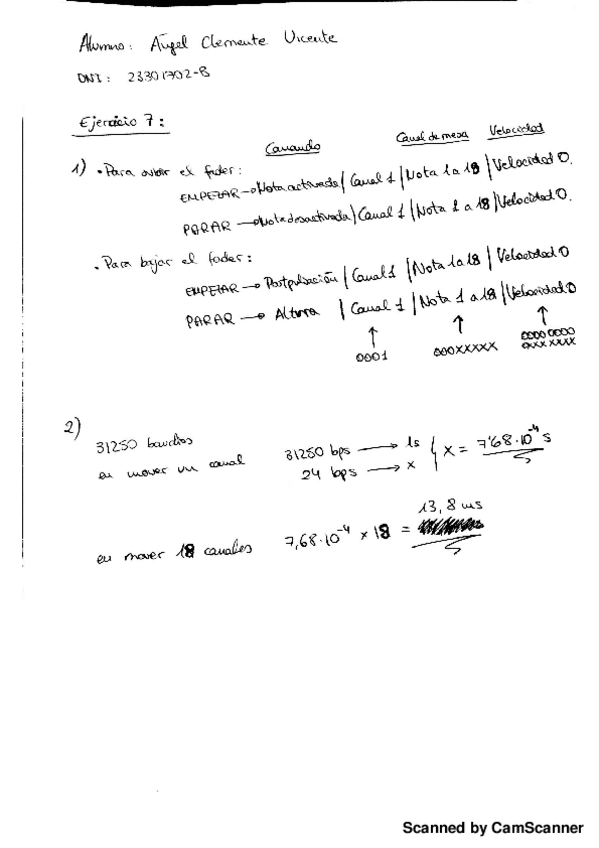 Alumno: Ángel Clemente Vicente
DNI: 23301702-B
Ejercicio 7:
Comando Canal de mesa Velocidad
1) • Para subir el fader:
EMPEZAR → Nota activada / Canal 1 / Nota 1 a 18 / Velocidad 0.
PARAR → Nota desactivada / Canal 1 / Nota 1 a 18 / Velocidad 0.
• Para bajar el fader:
EMPEZAR → Postpulsación / Canal 1 / Nota 1 a 18 / Velocidad 0
PARAR → Altura / Canal 1 / Nota 1 a 18 / Velocidad 0
↑ ↑ ↑
0001 000XXXXX 0000 0000
0XXX XXXX
2)
31250 baudios 31250 bps → 1s
en mover un canal 24 bps → x } x = 7'68·10⁻⁴ s
13,8 ms
en mover 18 canales 7,68·10⁻⁴ x 18 =
Scanned by CamScanner